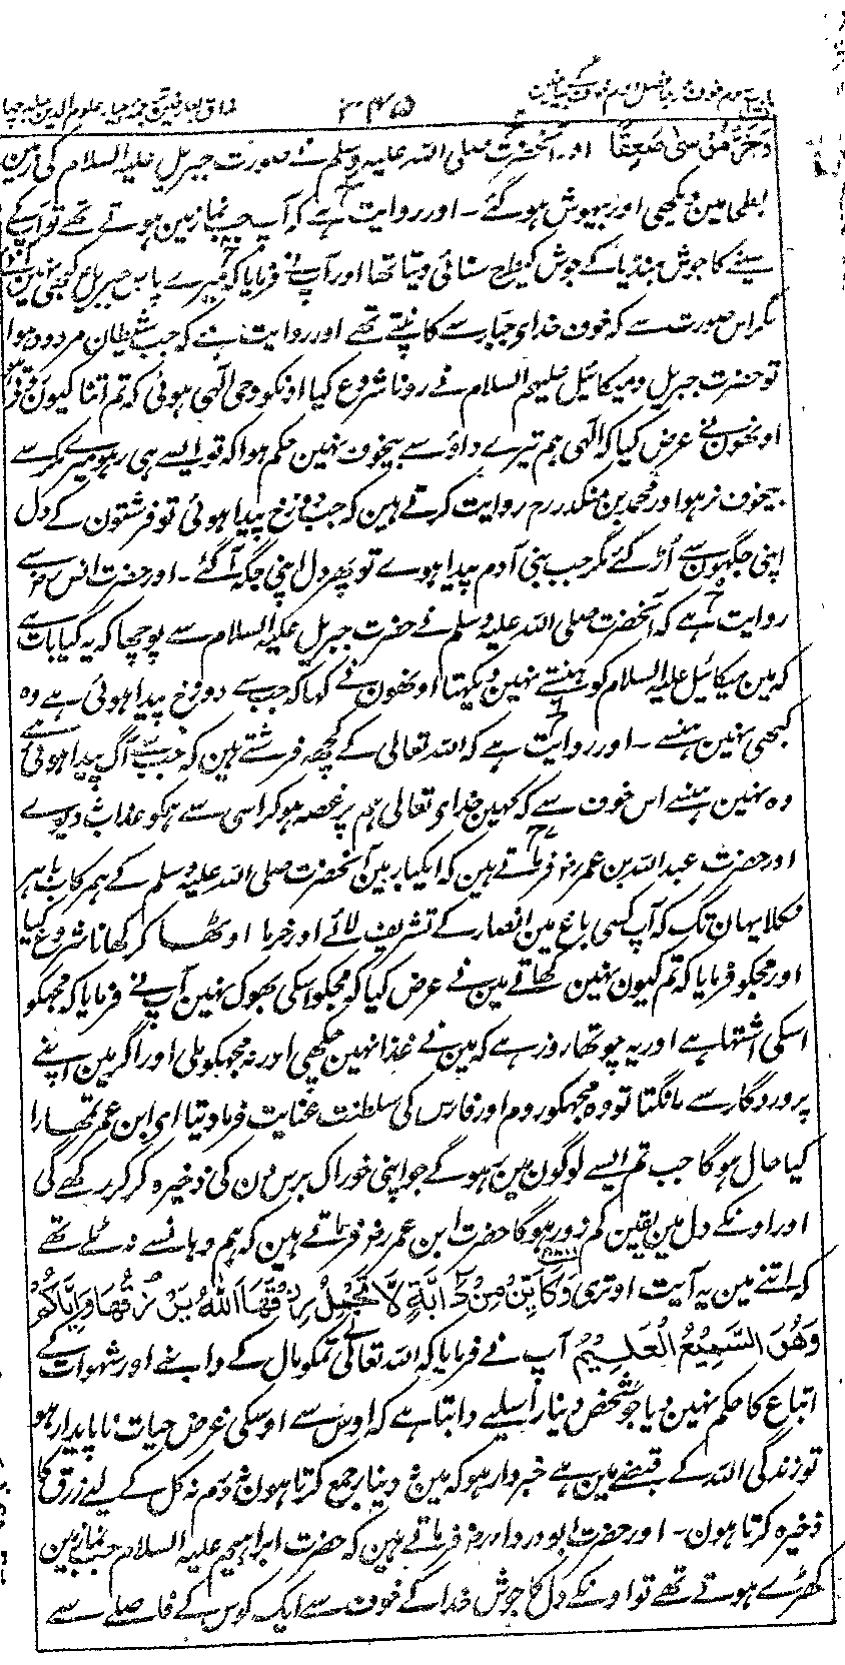 ۳۴۵
وَخَرَّ مُوْسٰى صَعِقًا اور آنحضرت صلی اللہ علیہ وسلم نے صورت جبریل علیہ السلام کی زمین
بطحا مین دیکھی اور بیہوش ہو گئے ۔ اور روایت ہے کہ آپ جب نماز مین ہوتے تھے تو آپ کے
سینے کا جوش ہنڈیا کے جوش کیطرح سنائی دیتا تھا اور آپ نے فرمایا کہ میرے پاس جبریل کبھی نہین آئے
مگر اس صورت سے کہ خوف خدای جبار سے کانپتے تھے اور روایت ہے کہ جب شیطان مردود ہوا
تو حضرت جبریل و میکائیل علیہم السلام نے رونا شروع کیا اونکو وحی الٰہی ہوئی کہ تم اتنا کیون روتے ہو
اونھون نے عرض کیا کہ الٰہی ہم تیرے داؤ سے بیخوف نہین حکم ہوا کہ تو ایسے ہی رہو میرے مکر سے
بیخوف نہ ہو اور محمد بن منکدر رح روایت کرتے ہین کہ جب دوزخ پیدا ہوئی تو فرشتون کے دل
اپنی جگہون سے اُڑ گئے مگر جب بنی آدم پیدا ہوے تو پھر دل اپنی جگہ آ گئے ۔ اور حضرت انس رض سے
روایت ہے کہ آنحضرت صلی اللہ علیہ وسلم نے حضرت جبریل علیہ السلام سے پوچھا کہ یہ کیا بات ہے
کہ مین میکائیل علیہ السلام کو ہنستے نہین دیکھتا اونھون نے کہا کہ جب سے دوزخ پیدا ہوئی ہے وہ
کبھی نہین ہنسے ۔ اور روایت ہے کہ اللہ تعالی کے کچھ فرشتے ہین کہ جب سے آگ پیدا ہوئی ہے
وہ نہین ہنسے اس خوف سے کہ کہین خدای تعالی ہم پر غصہ ہو کر اسی سے ہمکو عذاب دیوے
اور حضرت عبد اللہ بن عمر رض فرماتے ہین کہ ایکبار مین آنحضرت صلی اللہ علیہ وسلم کے ہمرکاب باہر
نکلا یہان تک کہ آپ کسی باغ مین انصار کے تشریف لائے اور خرما اوٹھا کر کھانا شروع کیا
اور مجکو فرمایا کہ تم کیون نہین کھاتے مین نے عرض کیا کہ مجکو اسکی بھوک نہین آپ نے فرمایا کہ مجھکو
اسکی اشتہا ہے اور یہ چوتھا روز ہے کہ مین نے غذا نہین چکھی اور نہ مجھکو ملی اور اگر مین اپنے
پروردگار سے مانگتا تو وہ مجھکو روم اور فارس کی سلطنت عنایت فرما دیتا ای ابن عمر تمھارا
کیا حال ہوگا جب تم ایسے لوگون مین ہو گے جو اپنی خوراک برس دن کی ذخیرہ کر کر رکھے گی
اور اونکے دل مین یقین کم زور ہوگا حضرت ابن عمر رض فرماتے ہین کہ ہم وہانسے نہ ٹلے تھے
کہ اتنے مین یہ آیت اوتری وَكَاَيِّنْ مِنْ دَآبَّةٍ لَّا تَحْمِلُ رِزْقَهَا اَللّٰهُ يَرْزُقُهَا وَاِيَّاكُمْ
وَهُوَ السَّمِيْعُ الْعَلِيْمُ آپ نے فرمایا کہ اللہ تعالی نے تمکو مال کے دابنے اور شہوات کے
اتباع کا حکم نہین دیا جو شخص دینار اسلیے دابتا ہے کہ اوس سے اوسکی غرض حیات ناپایدار ہو
تو زندگی اللہ کے قبضے مین ہے خبردار ہو کہ مین نہ دینار جمع کرتا ہون نہ درم نہ کل کے لیے رزق کا
ذخیرہ کرتا ہون ۔ اور حضرت ابو دردا رض فرماتے ہین کہ حضرت ابراہیم علیہ السلام جب نماز مین
کھڑے ہوتے تھے تو اونکے دل کا جوش خدا کے خوف سے ایک کوس کے فاصلے سے